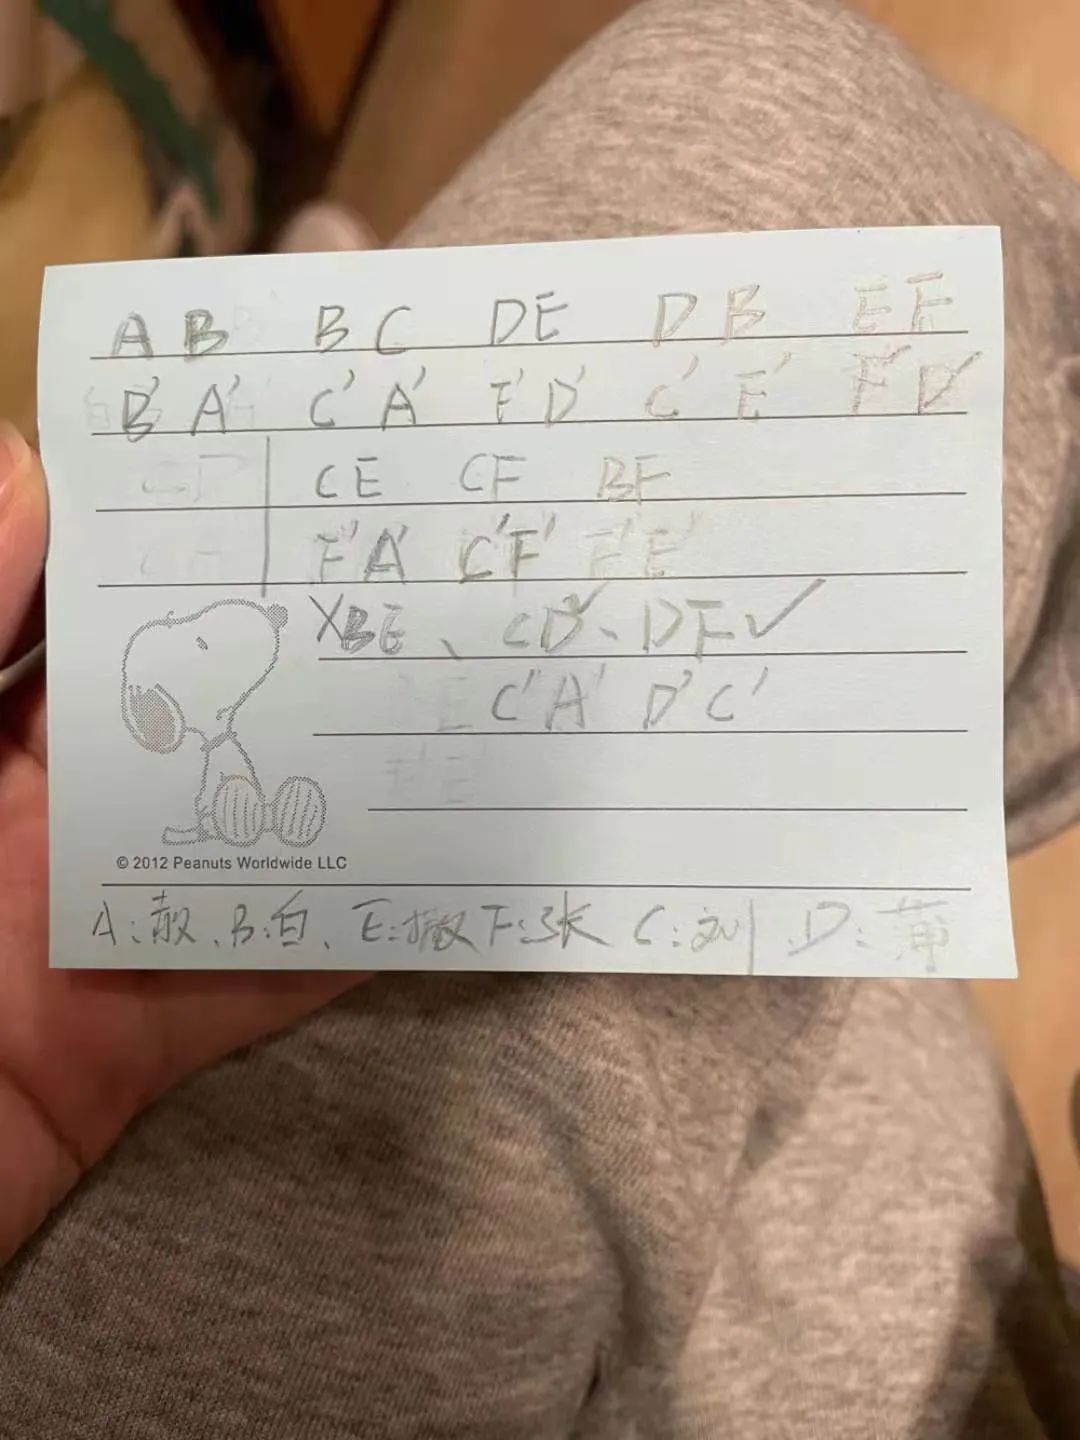 A B  B C  DE  D B  E F
B' A'  C' A'  F' D'  C' E'  F' D'
CE  CF  BF
F'A'  C'F'  F'E'
XBE、CD✓、DF✓
C'A'  D'C'
© 2012 Peanuts Worldwide LLC
A:散、B:白、E:撒 F:张 C:刘 D:薄